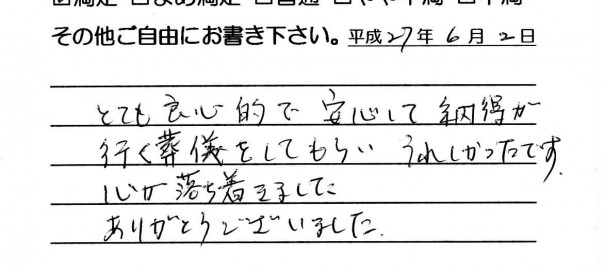 ☑満足 □まあ満足 □普通 □やや不満 □不満
その他ご自由にお書き下さい。平成27年6月2日
とても良心的で 安心して 納得が
行く葬儀をしてもらい うれしかったです。
心が落ち着きました
ありがとうございました.